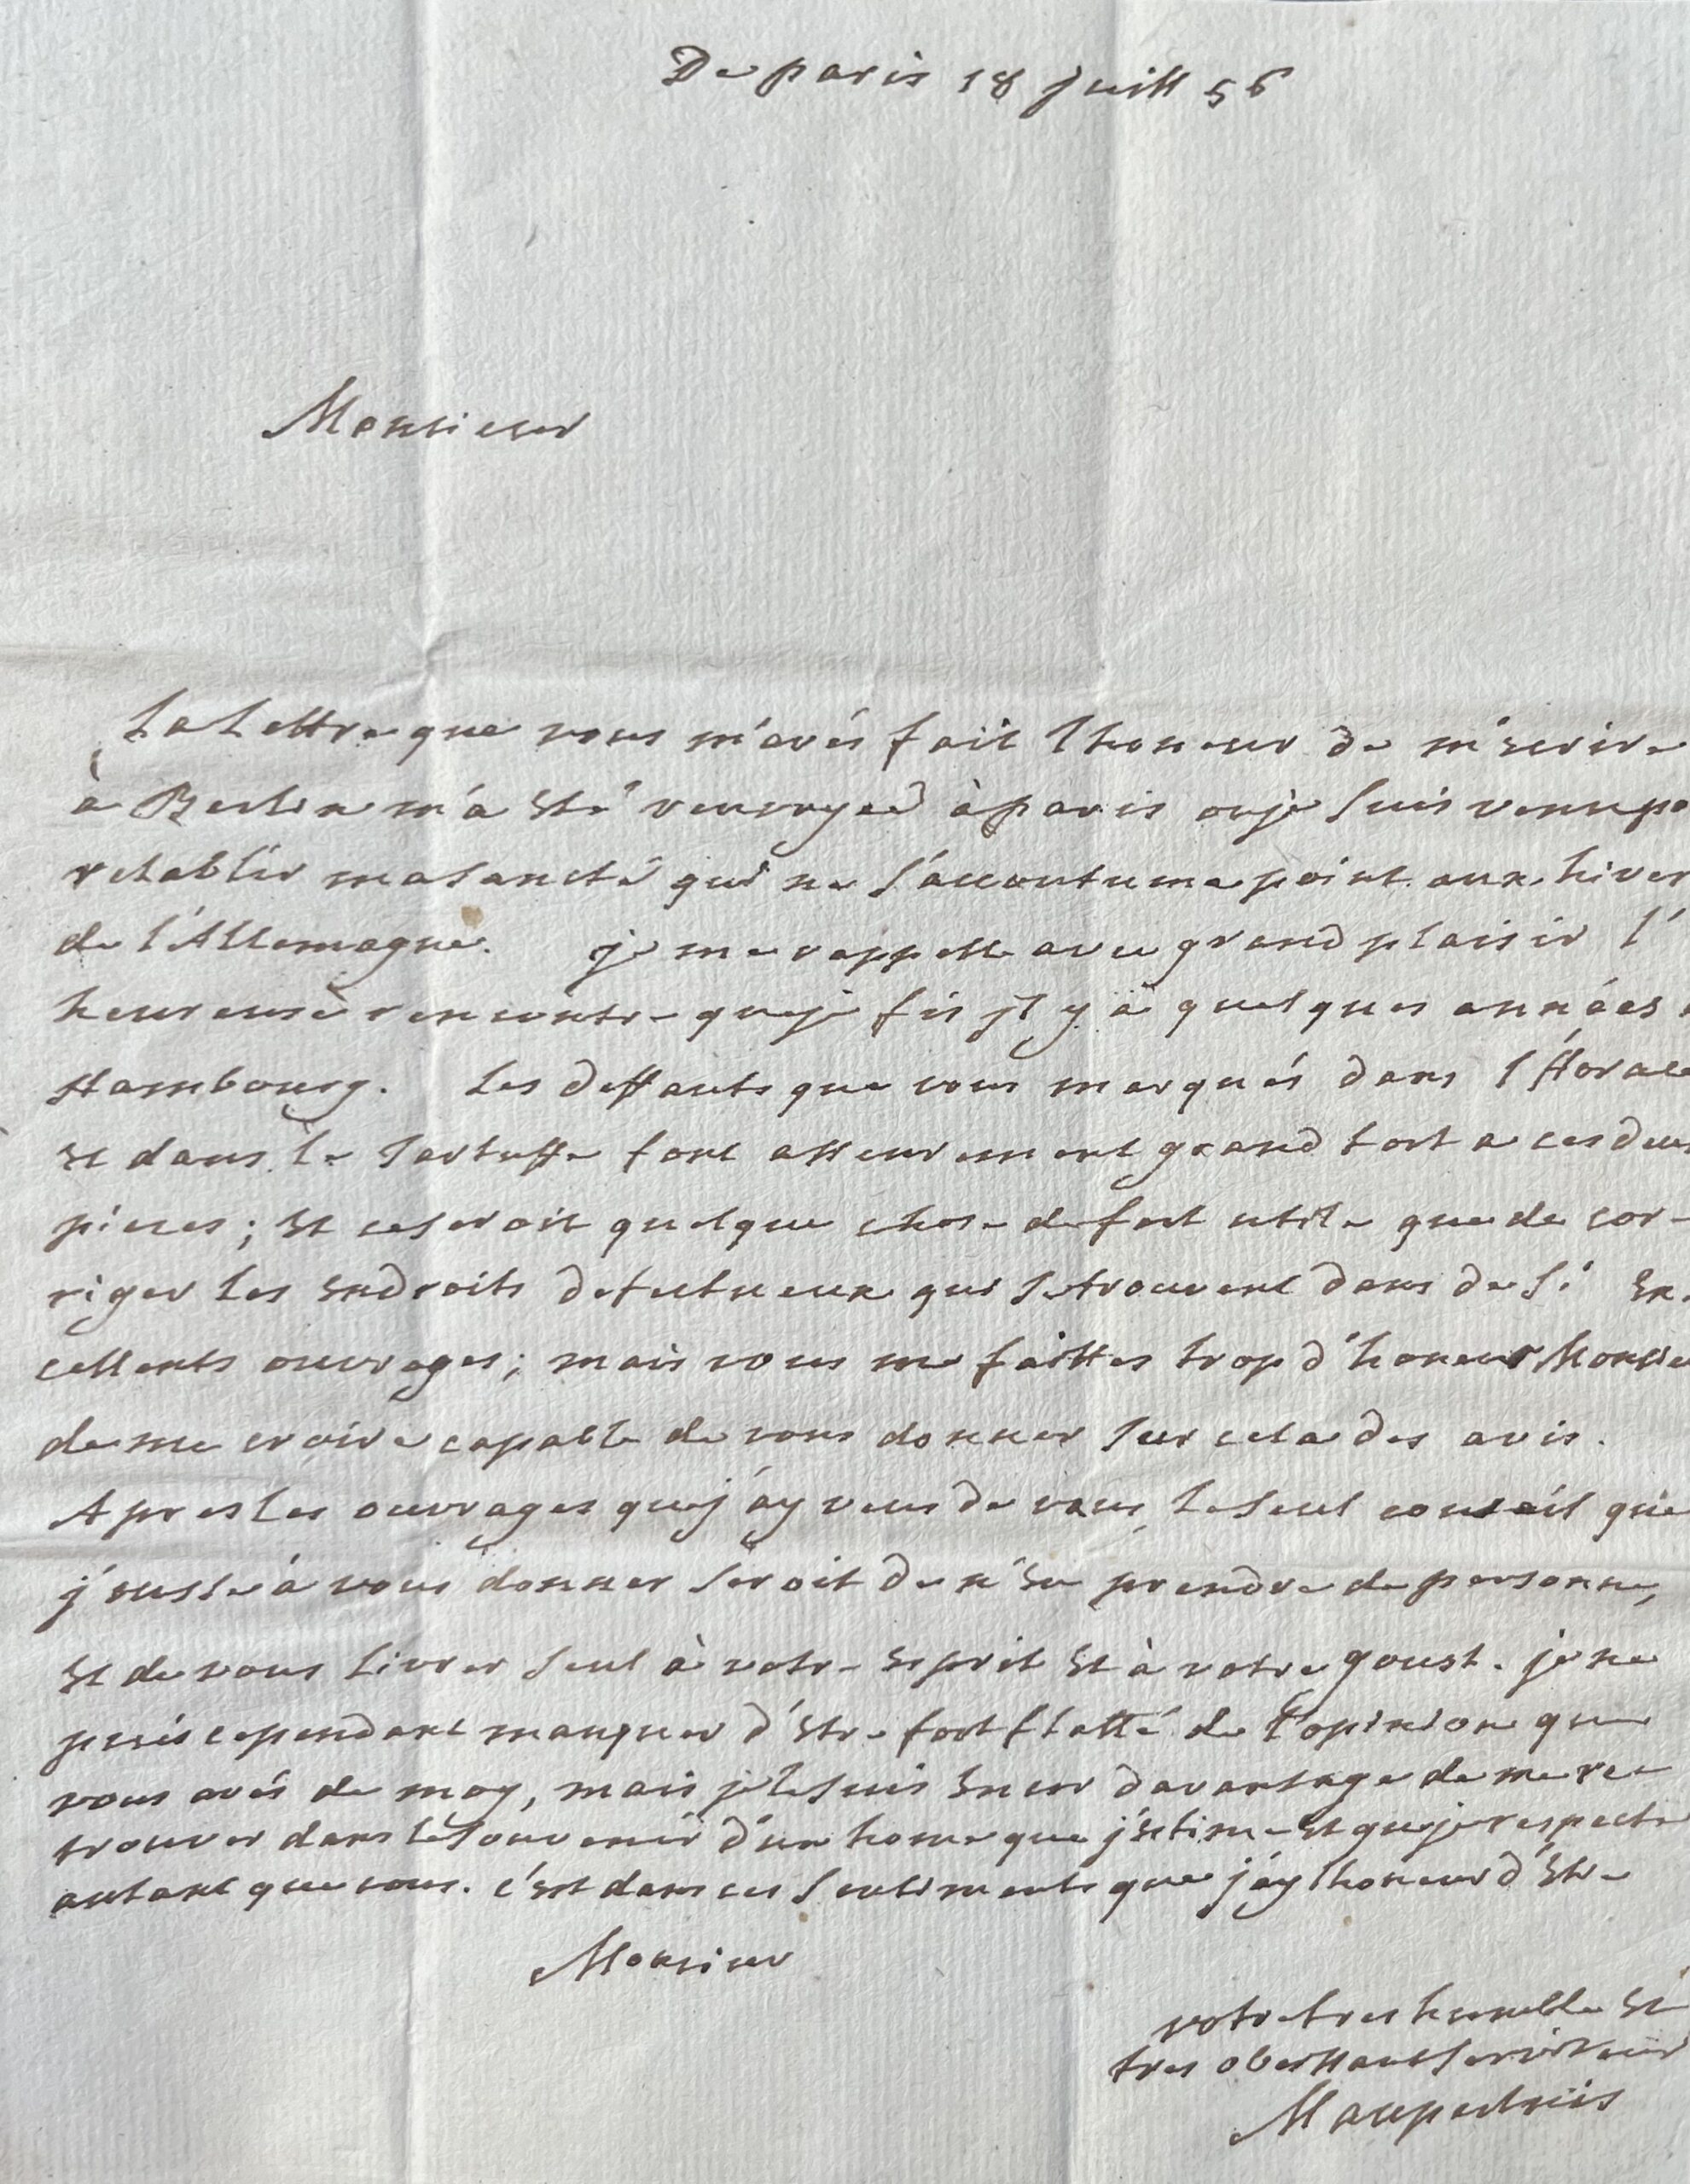 De paris 18 juill 56
Monsieur
La Lettre que vous m'avés fait l'honeur de m'ecrire
a Berlin m'a eté renvoyeé à paris ou je suis venu po
retablir ma santé qui ne s'accoutume point aux hiver
de l'Allemagne. je me rappelle avec grand plaisir l'
heureuse rencontre que je fis jl y a quelques années
Hambourg. Les deffauts que vous marqués dans l'Horace
et dans le Tartuffe font asseurement grand tort a ces deux
pieces; et ce seroit quelque chose de fort utile que de cor-
riger les endroits defectueux qui se trouvent dans de si ex-
cellents ouvrages; mais vous me faittes trop d'honeur Monsieu
de me croire capable de vous donner sur cela des avis.
Apres les ouvrages que j'ay veus de vous, le seul conseil que
j'eusse à vous donner seroit de n'en prendre de personne,
et de vous livrer seul à votre esprit et à votre goust. je ne
puis cependant manquer d'etre fort flatté de l'opinion que
vous avés de moy, mais je le suis encor davantage de me re-
trouver dans le souvenir d'un home que j'estime et que je respecte
autant que vous. c'est dans ces sentiments que j'ay l'honeur d'etre
Monsieur
votre tres humble et
tres obeissant serviteur
Maupertuis